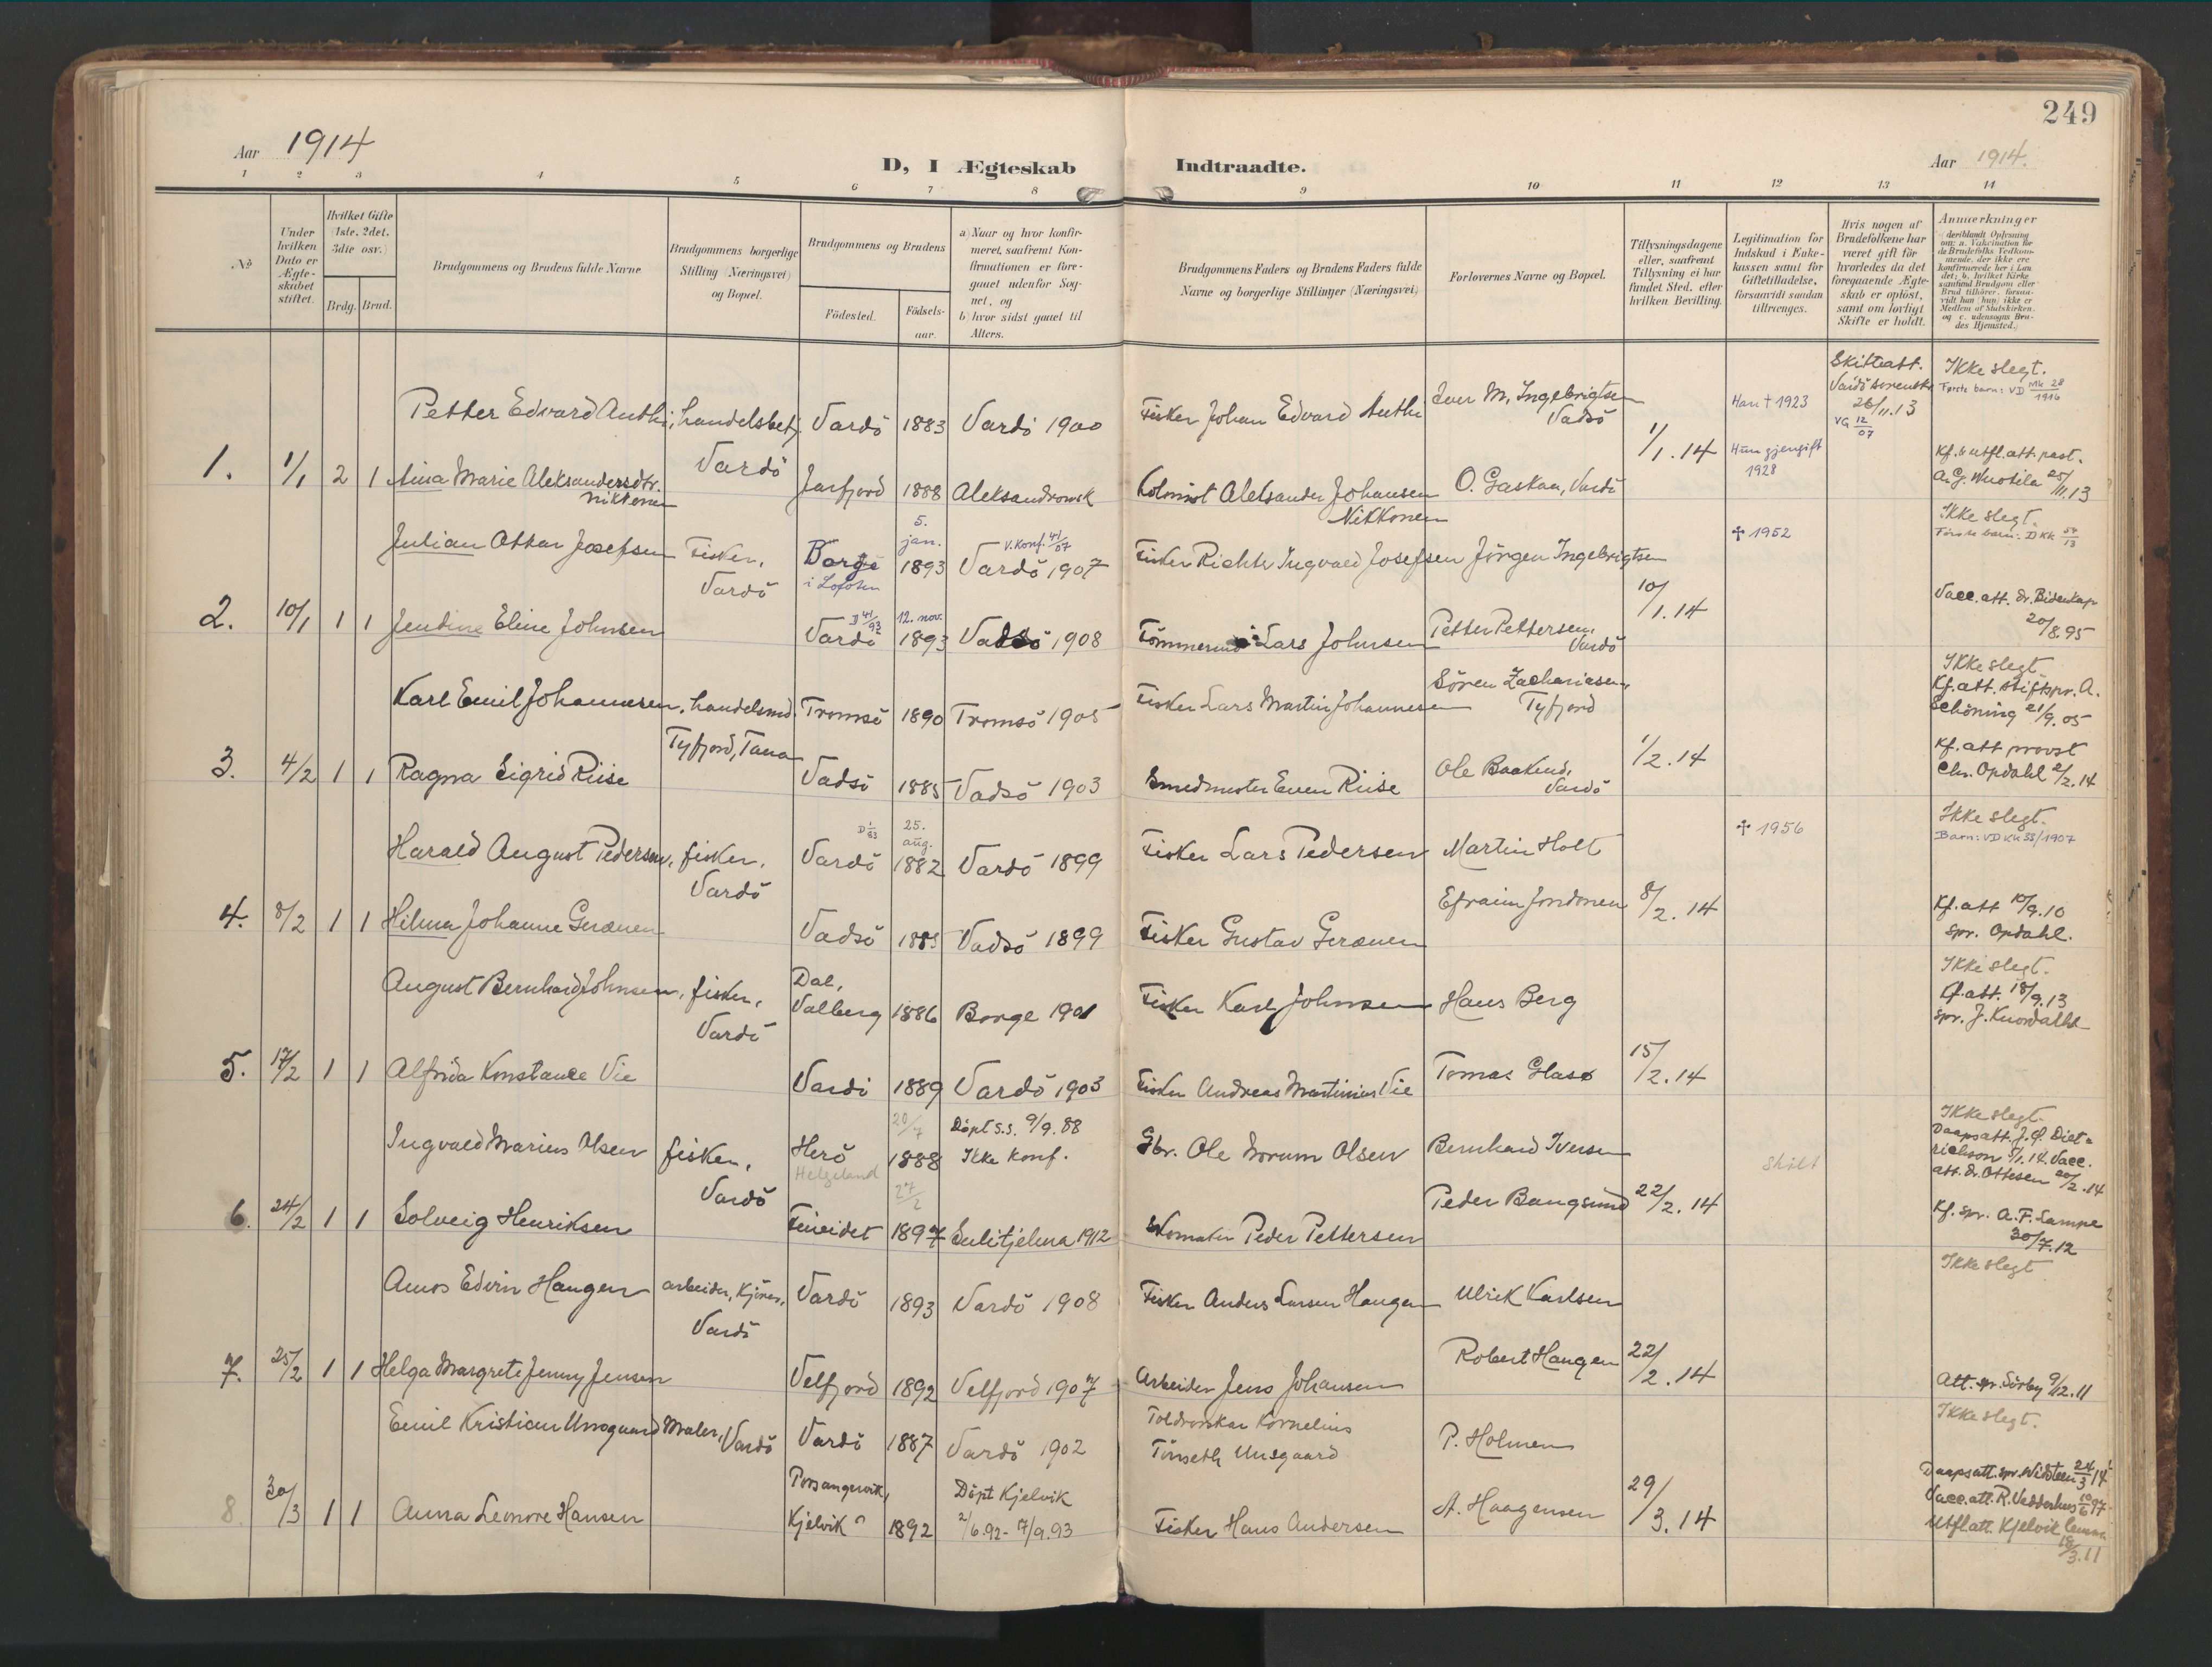 249
Aar 1914
D, I Ægteskab Indtraadte.
Aar 1914.
1 2 3 4 5 6 7 8 9 10 11 12 13 14
No
Under hvilken Dato er Ægteskabet stiftet.
Hvilket Gifte (1ste, 2det, 3die osv.)
Brdg. Brud.
Brudgommens og Brudens fulde Navne
Brudgommens borgerlige Stilling (Næringsvei) og Bopæl.
Brudgommens og Brudens
Födested.
Födsels-aar.
a) Naar og hvor konfirmeret, saafremt Konfirmationen er foregaaet udenfor Sognet, og
b) hvor sidst gaaet til Alters.
Brudgommens Faders og Brudens Faders fulde Navne og borgerlige Stillinger (Næringsvei)
Forlovernes Navne og Bopæl.
Tillysningsdagene eller, saafremt Tillysning ei har fundet Sted, efter hvilken Bevilling.
Legitimation for Indskud i Enkekassen samt for Giftetilladelse, forsaavidt saadan tiltrænges.
Hvis nogen af Brudefolkene har været gift för hvorledes da det foregaaende Ægteskab er oplöst, samt om lovligt Skifte er holdt.
Anmerkninger
Petter Edvard Anthi, handelsbetj. Vardö 1883 Vardö 1900 Fisker Johan Edvard Anthi Iver M. Ingebrigtsen Vadsö
Han † 1923
Skifteatt. Vardö sorenskr. 26/11.13
VG 12/07
Ikke slegt.
Første barn: VD Mk 28/1916
1. 1/1 2 1 Aina Marie Aleksandersdtr. Nikkonen Vardö Jarfjord 1888 Aleksandrowsk Kolonist Aleksander Johansen Nikkonen O. Gaskaa, Vardö 1/1.14
Hun gjengift 1928
Kf. & utfl. att. past. A.G. Wuotila 25/11.13
Julian Ottar Josefsen Fisker, Vardö Borge i Lofoten 5. jan. 1893 V. Konf. 41/07 Vardö 1907 Fisker Richter Ingvald Josefsen Jörgen Ingebrigtsen
† 1952
Ikke slegt.
Første barn: DKk 54/13
2. 10/1 1 1 Jendine Eline Johnsen D 41/93 Vardö 12. nov. 1893 Vadsö 1908 Tömmermd. Lars Johnsen Petter Pettersen, Vardö 10/1.14
Vacc. att. dr. Bidenkap 20/8.95
Karl Emil Johannesen, handelsmd. Tyfjord, Tana Tromsö 1890 Tromsö 1905 Fisker Lars Martin Johannesen Sören Zachariasen, Tyfjord
Ikke slegt.
Kf. att. stiftspr. A. Schöning 21/9.05
3. 4/2 1 1 Ragna Sigrid Riise Vadsö 1885 Vadsö 1903 Smedmester Even Riise Ole Baakend, Vardö 1/2.14
Kf. att provst Chr. Opdahl 2/2.14
Harald August Pedersen, fisker, Vardö D 1/83 Vardö 25. aug. 1882 Vardö 1899 Fisker Lars Pedersen Martin Holt
† 1956
Ikke slegt.
Barn: VD Kk 55/1907
4. 8/2 1 1 Hilma Johanne Gerænen Vadsö 1885 Vadsö 1899 Fisker Gustav Gerænen Efraim Jondonen 8/2.14
Kf. att 10/9.10 spr. Opdahl.
August Bernhard Johnsen, fisker, Vardö Dal, Valberg 1886 Borge 1901 Fisker Karl Johnsen Hans Berg
Ikke slegt.
Kf. att. 18/9.13 spr. J. Knordahl
5. 17/2 1 1 Alfrida Konstance Vie Vardö 1889 Vardö 1903 Fisker Andreas Martinius Vie Tomas Glasø 15/2.14
Ingvald Marius Olsen fisker, Vardö Herö Helgeland 20/7 1888 Döpt s.s. 9/9.88 Ikke konf. Gbr. Ole Norum Olsen Bernhard Iversen
Skilt
Ikke slegt.
Daapsatt. J. Q. Dietrichson 5/1.14. Vacc. att. dr. Ottesen 20/2.14
6. 24/2 1 1 Solveig Henriksen Fineidet 27/2 1897 Sulitjelma 1912 Skomaker Peder Pettersen Peder Bangsund 22/2.14
Kf. spr. A.F. Lampe 30/7.12
Amos Edvin Haugen arbeider, Kjönes, Vardö Vardö 1893 Vardö 1908 Fisker Anders Larsen Haugen Ulrik Karlsen
Ikke slegt
7. 25/2 1 1 Helga Margrete Jenny Jensen Velfjord 1892 Velfjord 1907 Arbeider Jens Johansen Robert Haugen 22/2.14
Att. spr. Sörby 9/12.11
Emil Kristian Unsgaard Maler, Vardö Vardö 1887 Vardö 1902 Toldroerskar Kornelius Tönseth Unsgaard P. Holmen
Ikke slegt.
8 30/3 1 1 Anna Leonore Hansen Porsangervik, Kjelvik 1892 Döpt Kjelvik 2/6.92 - 17/9.93 Fisker Hans Andersen A. Haagensen 29/3.14
Daapsatt. spr. Widsteen 24/3 14
Vacc. att. R. Vedderhus 10/6 97
Utfl. att. Kjelvik 18/3.11